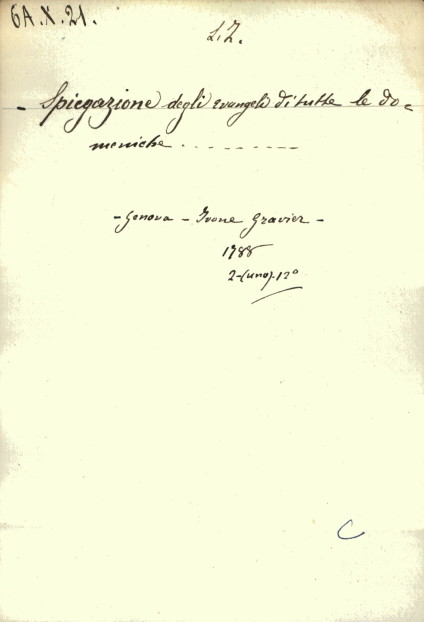 6A.X.21.
L.Z.
- Spiegazione degli evangeli di tutte le do=
meniche . - - - - - - -
- Genova - Ivone Gravier -
1788
2-(uno)-12°
C